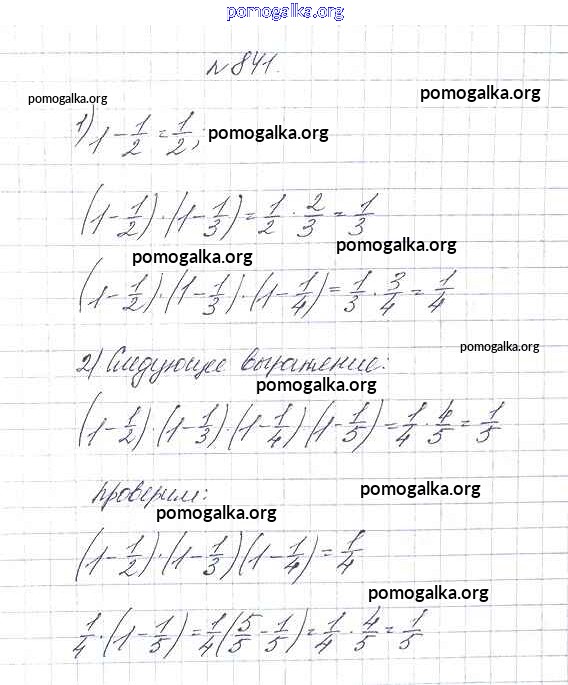 pomogalka.org
№ 841.
pomogalka.org
pomogalka.org
1) 1 - 1/2 = 1/2;
pomogalka.org
(1 - 1/2) · (1 - 1/3) = 1/2 · 2/3 = 1/3
pomogalka.org
pomogalka.org
(1 - 1/2) · (1 - 1/3) · (1 - 1/4) = 1/3 · 3/4 = 1/4
pomogalka.org
2) Следующее выражение:
pomogalka.org
(1 - 1/2) · (1 - 1/3) · (1 - 1/4) (1 - 1/5) = 1/4 · 4/5 = 1/5
pomogalka.org
Проверим:
pomogalka.org
(1 - 1/2) · (1 - 1/3) (1 - 1/4) = 1/4
pomogalka.org
1/4 · (1 - 1/5) = 1/4 (5/5 - 1/5) = 1/4 · 4/5 = 1/5